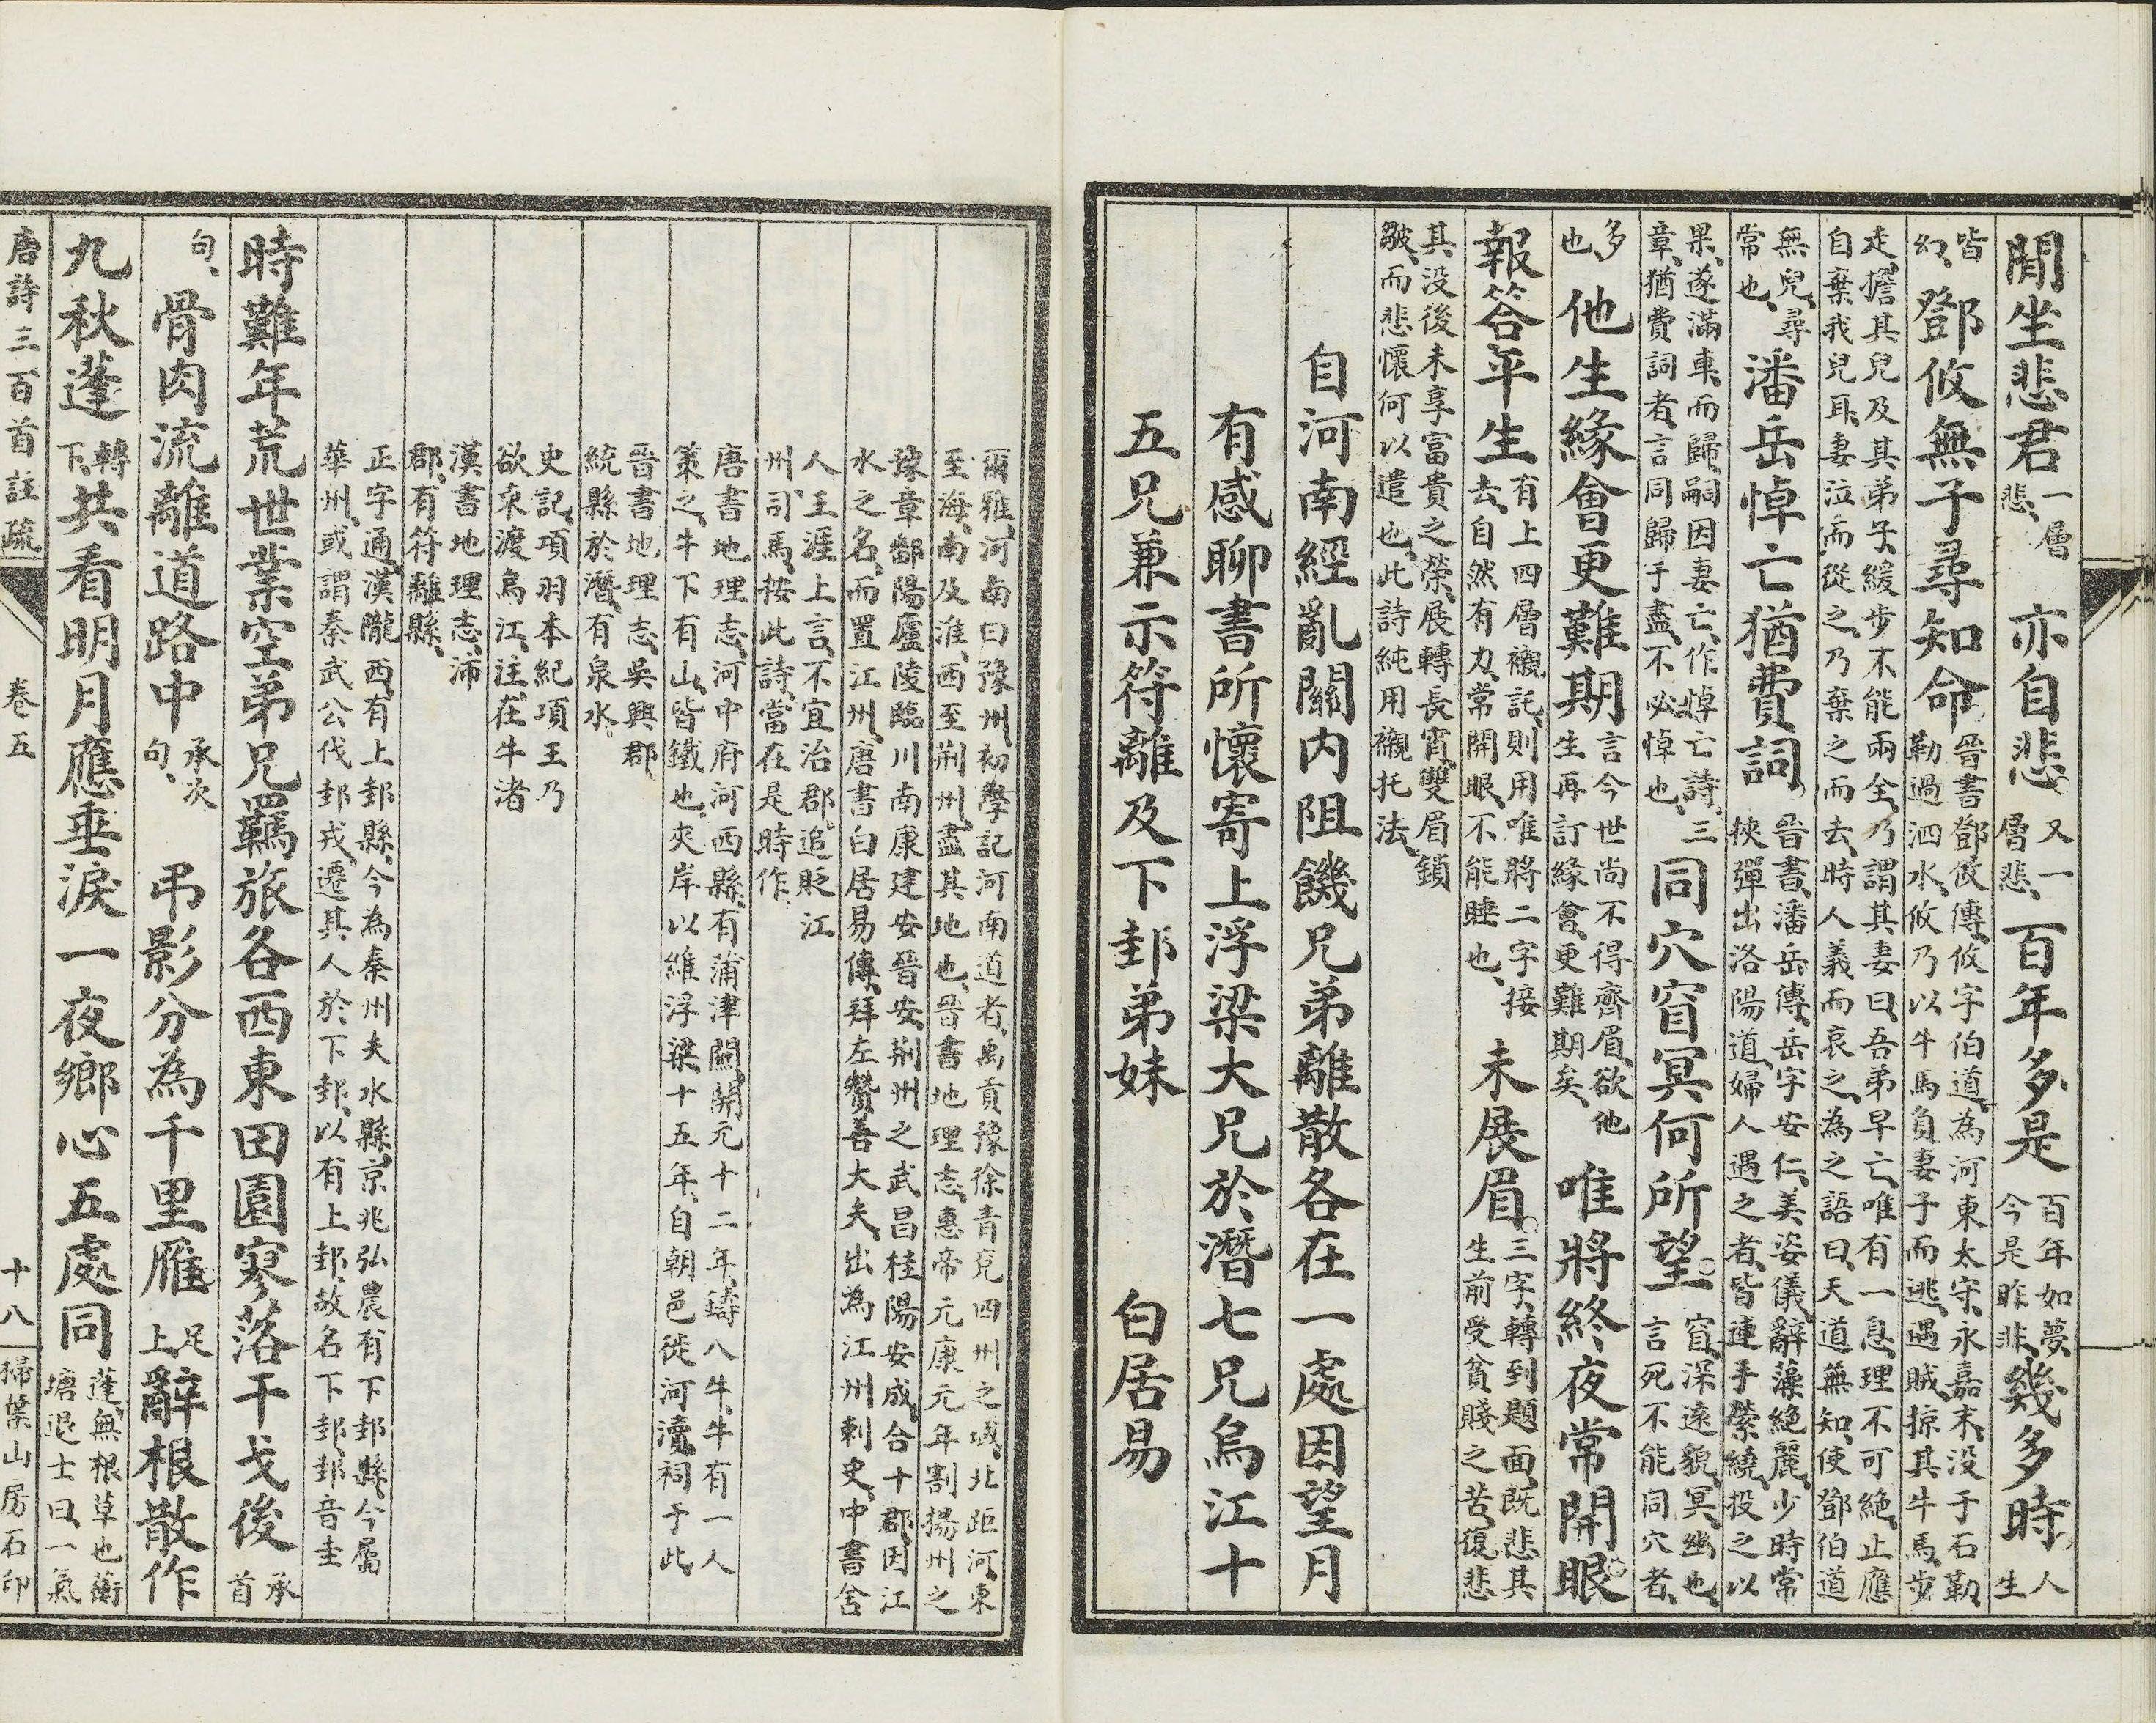 閒坐悲君一層悲、亦自悲又一層悲、百年多是百年如夢今是昨非、幾多時人生
皆幻、鄧攸無子尋知命晉書鄧攸傳、攸字伯道、為河東太守、永嘉末、没于石勒、勒過泗水、攸乃以牛馬負妻子而逃、遇賊、掠其牛馬、步
走、擔其兒及其弟子、緩步不能兩全、乃謂其妻曰、吾弟早亡、唯有一息、理不可絶、止應自棄我兒耳、妻泣而從之、乃棄之而去、時人義而哀之、為之語曰、天道無知、使鄧伯道
無兒、尋常也、潘岳悼亡猶費詞晉書、潘岳傳、岳字安仁、美姿儀、辭藻絶麗、少時常挾彈出洛陽道、婦人遇之者、皆連手縈繞、投之以
果、遂滿車而歸、嗣因妻亡、作悼亡詩三章、猶費詞者、言同歸于盡、不必悼也、同穴窅冥何所望窅、深遠貌、冥、幽也、言死不能同穴者、
多也他生緣會更難期言今世尚不得齊眉、欲他生再訂緣會、更難期矣、唯將終夜常開眼
報答平生有上四層襯託、則用唯將二字接去、自然有力、常開眼、不能睡也、未展眉三字、轉到題面、既悲其生前受貧賤之苦、復悲
其没後未享富貴之榮、展轉長宵、雙眉鎖皺、而悲懷何以遣也、此詩純用襯托法、
自河南經亂關内阻饑兄弟離散各在一處因望月
有感聊書所懷寄上浮梁大兄於潛七兄烏江十
五兄兼示符離及下邽弟妹　白居易
爾雅、河南曰豫州、初學記河南道者、禹貢豫徐青兗四州之域、北距河、東至海、南及淮、西至荆州、盡其地也、晉書地理志、惠帝元康元年割揚州之
豫章鄱陽廬陵臨川南康建安晉安、荆州之武昌桂陽安成、合十郡、因江水之名、而置江州、唐書白居易傳、拜左贊善大夫、出為江州刺史、中書舍
人王涯上言、不宜治郡、追貶江州司馬、按此詩、當在是時作、
唐書地理志、河中府河西縣、有蒲津關、開元十二年、鑄八牛、牛有一人策之、牛下有山、皆鐵也、夾岸以維浮梁、十五年、自朝邑徙河瀆祠于此、
晉書地理志、吳興郡、統縣於潛、有泉水。
史記、項羽本紀項王乃欲東渡烏江、注、在牛渚
漢書地理志、沛郡、有符離縣、
正字通、漢隴西、有上邽縣、今為秦州夫水縣、京兆弘農有下邽縣、今屬華州、或謂秦武公伐邽戎、遷其人於下邽、以有上邽、故名下邽、邽音圭
時難年荒世業空弟兄羈旅各西東田園寥落干戈後承首
句、骨肉流離道路中承次句、弔影分為千里雁足上辭根散作
九秋蓬轉下、共看明月應垂淚一夜鄉心五處同蓬、無根草也、蘅塘退士曰、一氣
唐詩三百首註疏　卷五　十八　掃葉山房石印